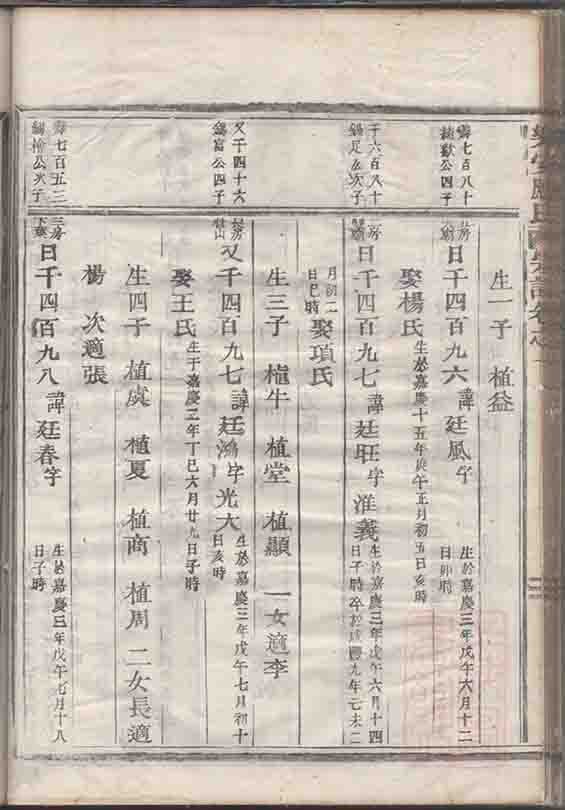 生一子 植益
壽七百八十
純獻公四子
日千四百九六 諱廷風字 生於嘉慶三年戊午六月十二
日卯時
娶楊氏 生於嘉慶十五年庚午正月初五日亥時
千六百八十
公次子
日千四百九七 諱廷旺字淮義 生於嘉慶三年戊午六月十四
日子時卒於咸豐九年己未二
月初二
日巳時 娶項氏
生三子 植牛 植堂 植顯 一女適李
又千四十六
富公四子
又千四百九七 諱廷鴻字光大 生於嘉慶三年戊午七月初十
日亥時
娶王氏 生于嘉慶二年丁巳六月廿九日子時
生四子 植虞 植夏 植商 植周 二女長適
楊 次適張
壽七百五三
公次子
三房
日千四百九八 諱廷春字 生於嘉慶三年戊午七月十八
日子時